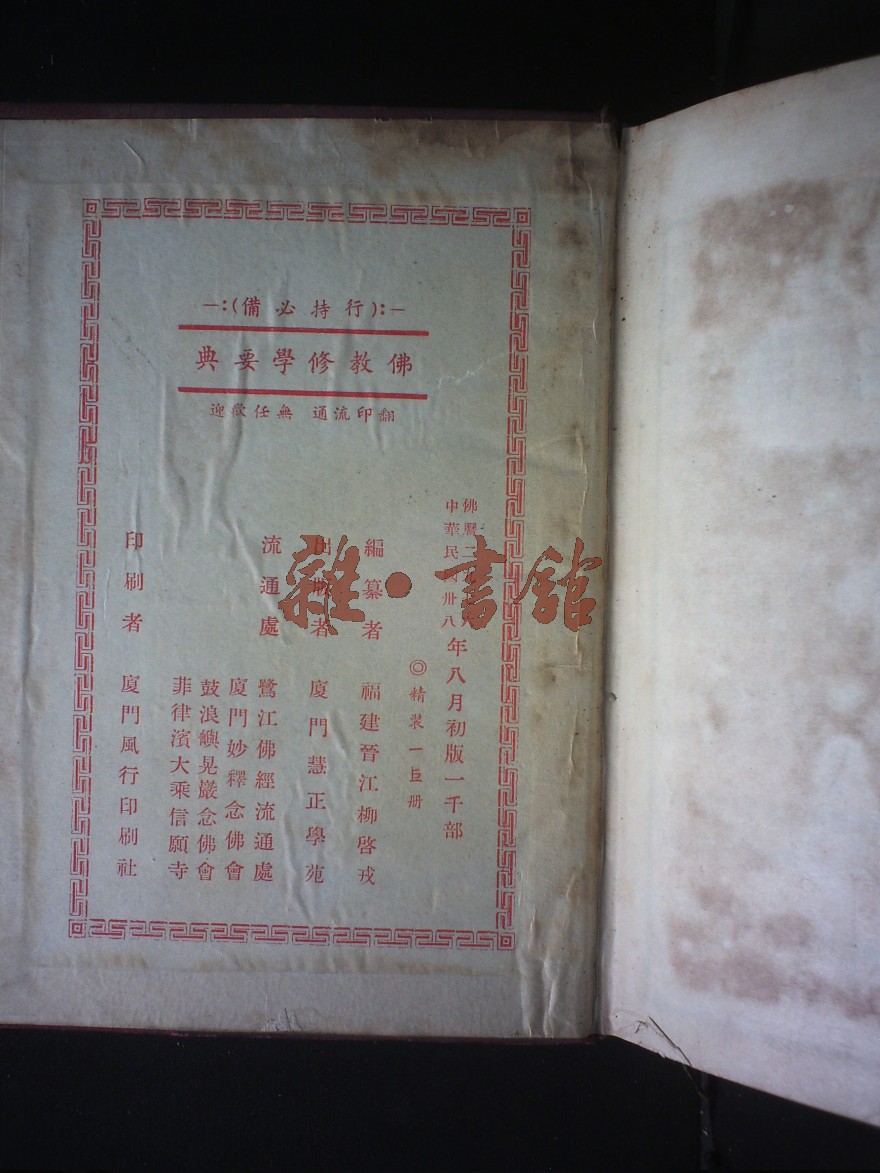 —:(行持必備):—
佛教修學要典
翻印流通 無任歡迎
佛曆二
中華民國卅八年八月初版一千部
◎精裝一巨册
編纂者 福建晉江柳啓戎
出版者 廈門慧正學苑
流通處 鷺江佛經流通處
廈門妙釋念佛會
鼓浪嶼晃巖念佛會
菲律濱大乘信願寺
印刷者 廈門風行印刷社
雜·書館